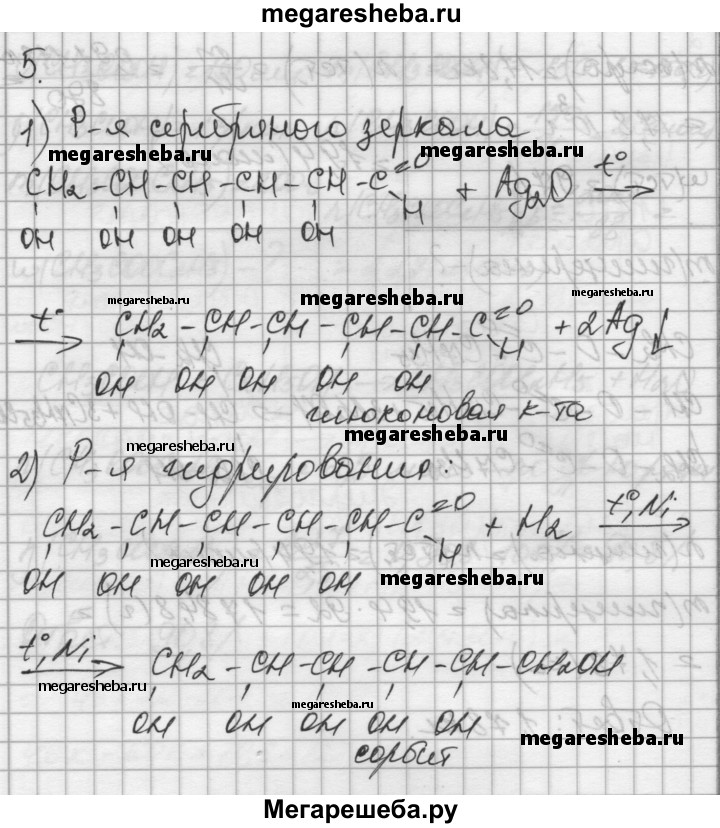 megaresheba.ru
5.
1) Р-я серебряного зеркала
megaresheba.ru megaresheba.ru
CH2 - CH - CH - CH - CH - C =O H + Ag2O t° →
OH OH OH OH OH
megaresheba.ru megaresheba.ru megaresheba.ru
t° → CH2 - CH - CH - CH - CH - C =O H + 2Ag↓
OH OH OH OH OH
глюконовая к-та
megaresheba.ru megaresheba.ru
2) Р-я гидрирования:
CH2 - CH - CH - CH - CH - C =O H + H2 t°, Ni →
OH OH OH OH OH
megaresheba.ru megaresheba.ru
t°, Ni → CH2 - CH - CH - CH - CH - CH2OH
megaresheba.ru megaresheba.ru
OH OH OH OH OH
сорбит
megaresheba.ru
Мегарешеба.ру